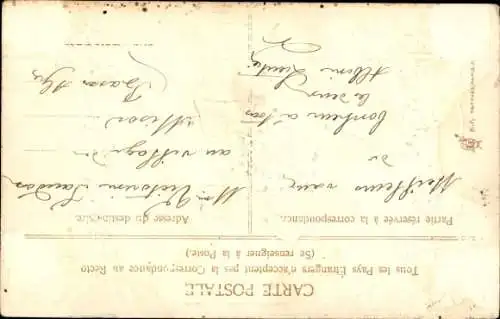 CARTE POSTALE
Tous les Pays Étrangers n'acceptent pas la Correspondance au Recto
(Se renseigner à la Poste.)
Partie réservée à la correspondance.
Meilleurs vœux
de
bonheur à tous
les deux
Albini
Adresse du destinataire.
Mr Victorin
au village
Mison
Basses Alpes